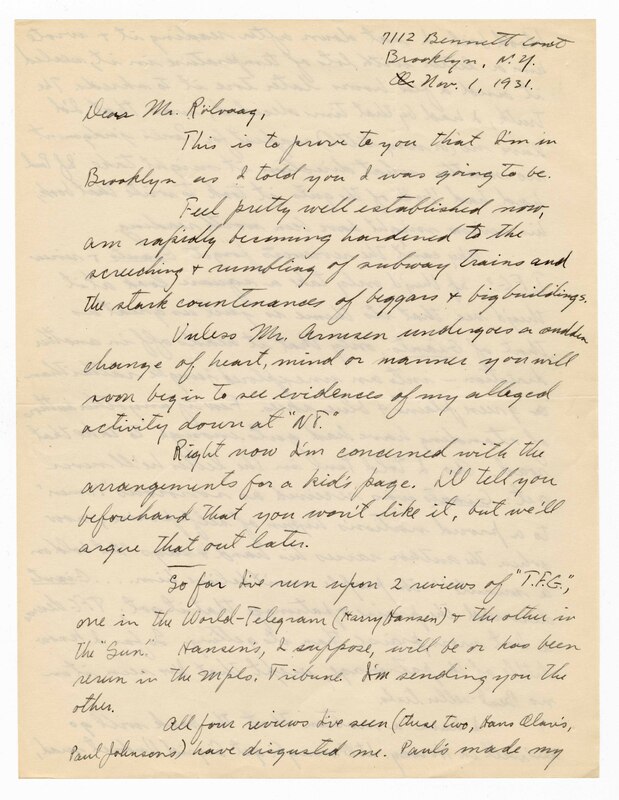 7112 Bennett Court
Brooklyn, N.Y.
Nov. 1, 1931.
Dear Mr. Rölvaag,
This is to prove to you that I'm in
Brooklyn as I told you I was going to be.
Feel pretty well established now,
am rapidly becoming hardened to the
screeching + rumbling of subway trains and
the stark countenances of beggars + big buildings.
Unless Mr. Arnesen undergoes a sudden
change of heart, mind or manner you will
soon begin to see evidences of my alleged
activity down at "NT."
Right now I'm concerned with the
arrangements for a kid's page. I'll tell you
beforehand that you won't like it, but we'll
argue that out later.
So far I've run upon 2 reviews of "T.F.G.",
one in the World-Telegram (Harry Hansen) + the other in
the "Sun." Hansen's, I suppose, will be or has been
rerun in the Mpls. Tribune. I'm sending you the
other.
All four reviews I've seen (these two, Hans Olav's,
Paul Johnson's) have disgusted me. Paul's made my